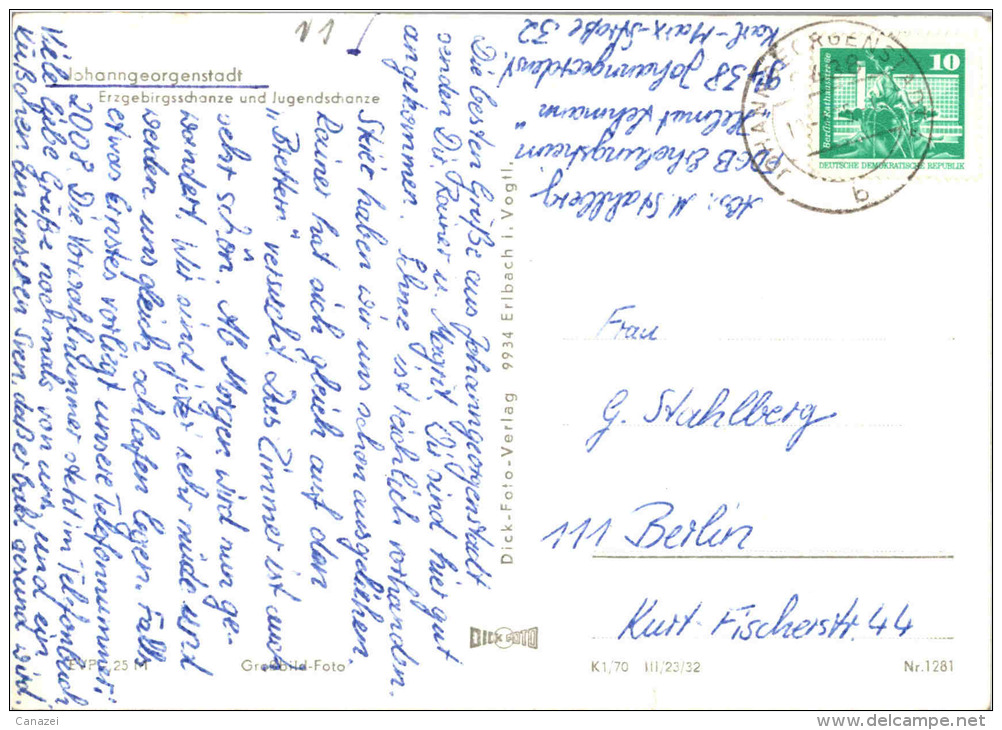 11
Johanngeorgenstadt
Erzgebirgsschanze und Jugendschanze
Abs.: M. Stahlberg
FDGB Erholungsheim
"Helmut Lehmann"
9438 Johanngeorgenst.
Karl-Marx-Straße 32
Die besten Grüße aus Johanngeorgenstadt
senden Dir Rainer u. Margrit. Wir sind hier gut
angekommen. Schnee ist reichlich vorhanden.
Skier haben wir uns schon ausgeliehen.
Rainer hat sich gleich auf den
"Brettern" versucht. Das Zimmer ist auch
sehr schön. Ab Morgen wird nun ge-
wandert. Wir sind jetzt sehr müde und
werden uns gleich schlafen legen. Falls
etwas Ernstes vorliegt unsere Telefonnummer:
2008. Die Vorwahlnummer steht im Telefonbuch
Viele liebe Grüße nochmals von uns und ein
Küßchen an unseren Sven, daß er bald gesund wird.
EVP 0,25 M
Großbild-Foto
Dick-Foto-Verlag 9934 Erlbach i. Vogtl.
DICK FOTO
JOHANNGEORGENSTADT
b
10
Berlin-Rathausstraße
DEUTSCHE DEMOKRATISCHE REPUBLIK
Frau
G. Stahlberg
111 Berlin
Kurt-Fischerstr. 44
K1/70 III/23/32
Nr. 1281
Canazei
delcampe.net